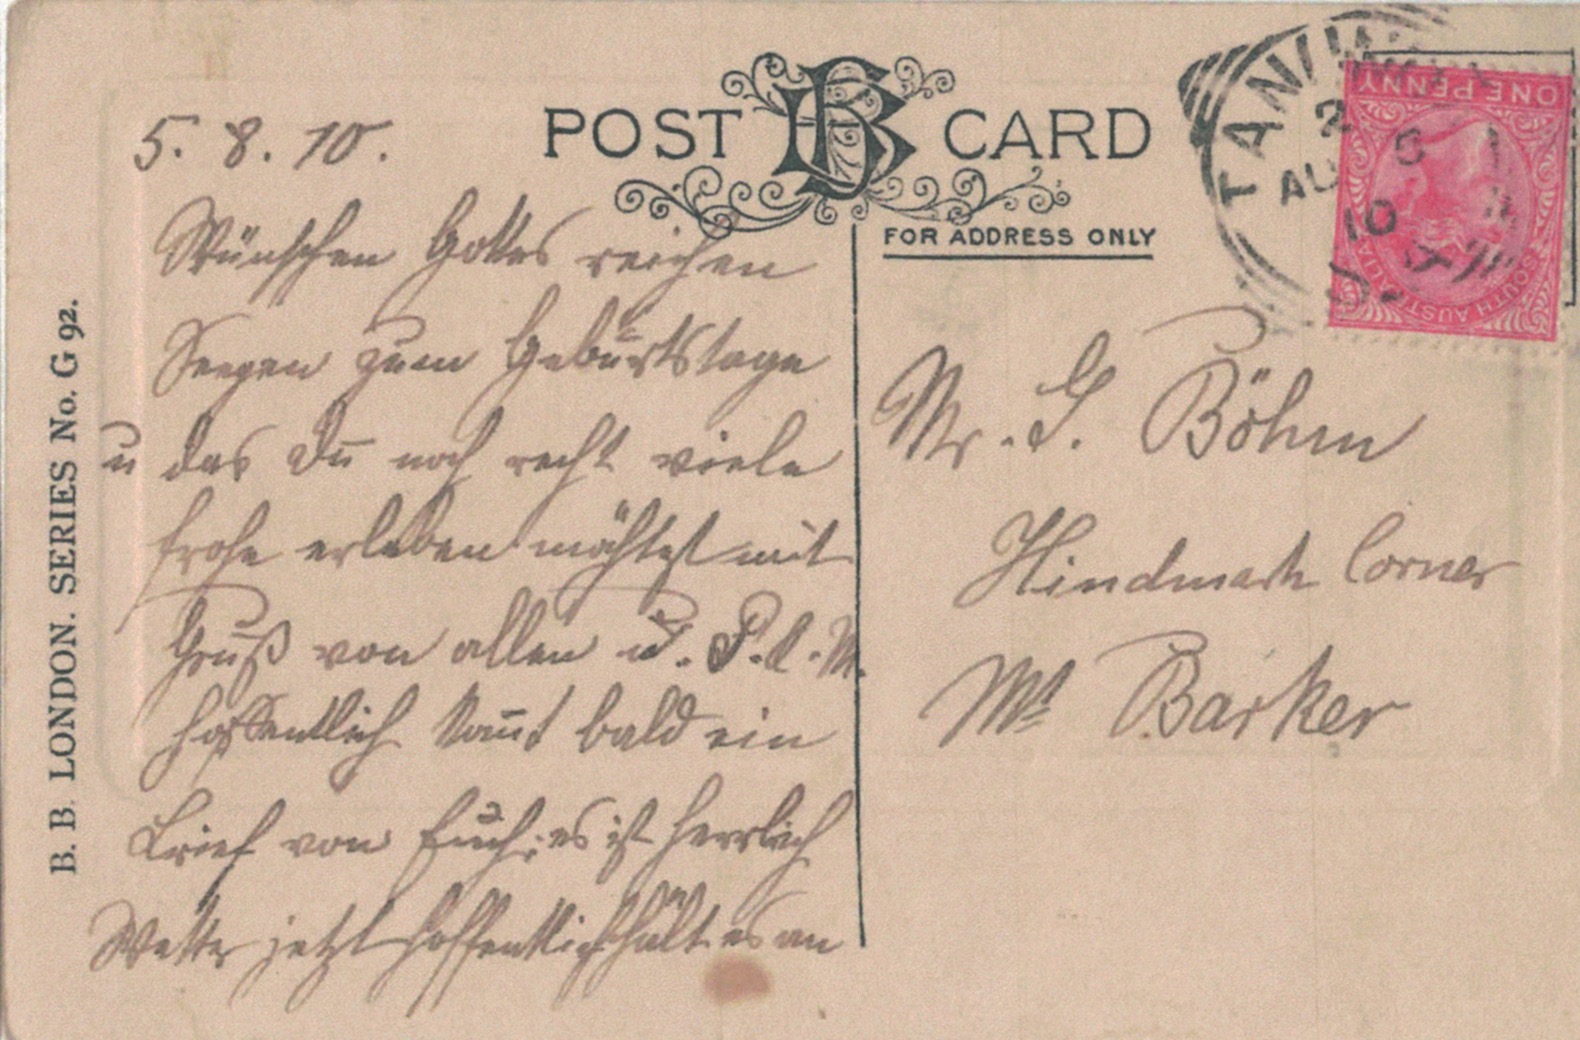 B. B. LONDON. SERIES No. G 92.
POST BB CARD
FOR ADDRESS ONLY
5. 8. 10.
Wünschen Gottes reichen
Seegen zum Geburtstage
u das Du noch recht viele
frohe erleben möchtest mit
Gruß von allen u. P. d. M.
hoffentlich kommt bald ein
Brief von Euch, es ist herrlich
Wetter jetzt hoffentlich hält es an
Mr. G. Böhm
Hindmarsh Corner
Mt Barker
TANU
AU 5
10
ONE PENNY
SOUTH AUSTRALIA